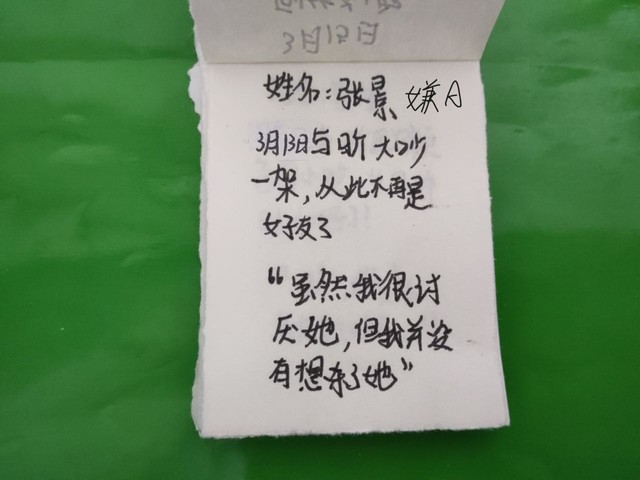 3月15日
姓名：张景 嫌A
3月13日与昕大吵
一架，从此不再是
好友了
“虽然我很讨
厌她，但我并没
有想杀了她”